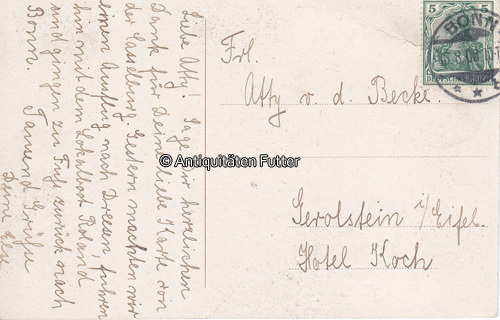 Liebe Atty! Sage Dir herzlichen
Dank für Deine liebe Karte von
der Casselburg. Gestern machten wir
einen Ausflug nach Dreesen, fuhren
hin mit dem Lokalboot Roland
und gingen zu Fuß zurück nach
Bonn. Tausend Grüße
Deine Else
Frl.
Atty v. d. Becke.
Gerolstein i/Eifel.
Hotel Koch
5
DEUTSCHES REICH
BONN
© Antiquitäten Futter